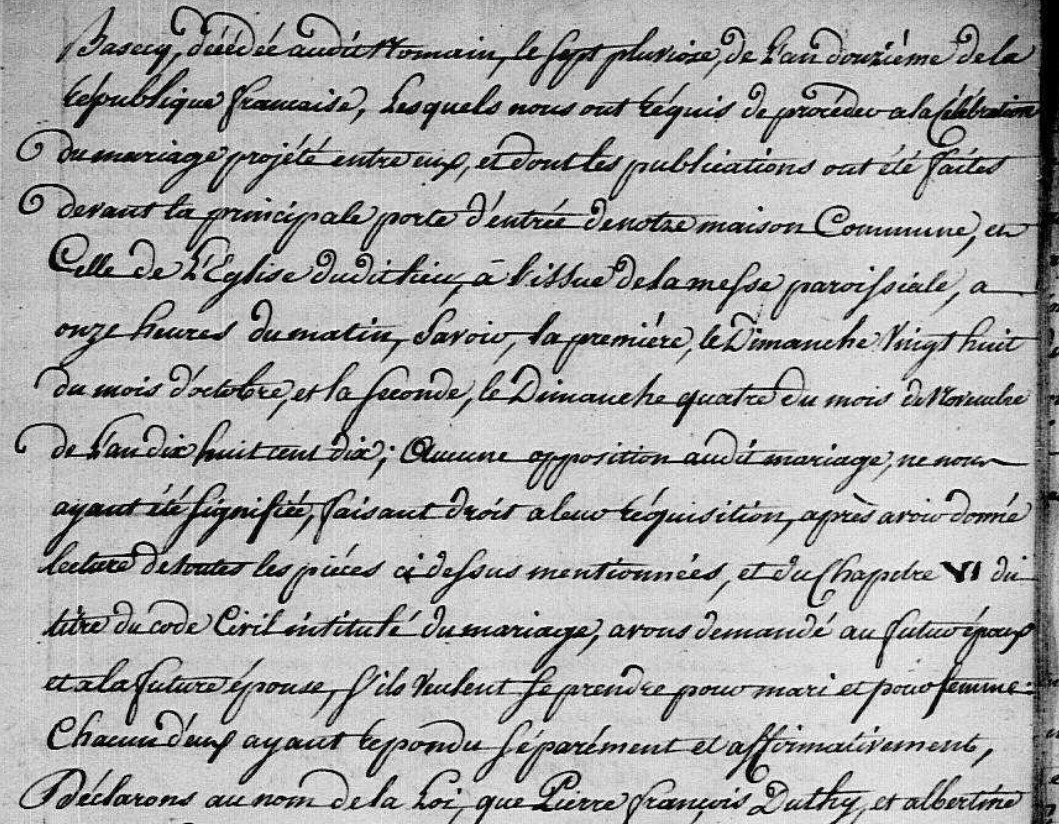 Basecq, décédée audit Romain, le sept pluviose, de L'an douziéme de la
République francaise, Lesquels nous ont réquis de procéder a la Célébration
du mariage projété entre eux, et dont les publications ont été faites
devant la principale porte d'entrée de notre maison Commune, et
Celle de L'Eglise dudit lieu, à l'issue de la messe paroissiale, a
onze heures du matin, Savoir, la premiére, le Dimanche Vingt huit
du mois d'octobre, et la seconde, le Dimanche quatre du mois de Novembre
de L'an dix huit cent dix; Aucune opposition audit mariage, ne nous
ayant été signifiée, faisant droit a leur réquisition, après avoir donné
lecture de toutes les piéces ci dessus mentionnées, et du Chapitre VI du
titre du code Civil intitulé du mariage, avons demandé au futur époux
et a la future épouse, s'ils Veulent se prendre pour mari et pour femme:
Chacun d'eux ayant répondu séparément et affirmativement,
Déclarons au nom de la Loi, que Pierre françois Duthy, et albertine